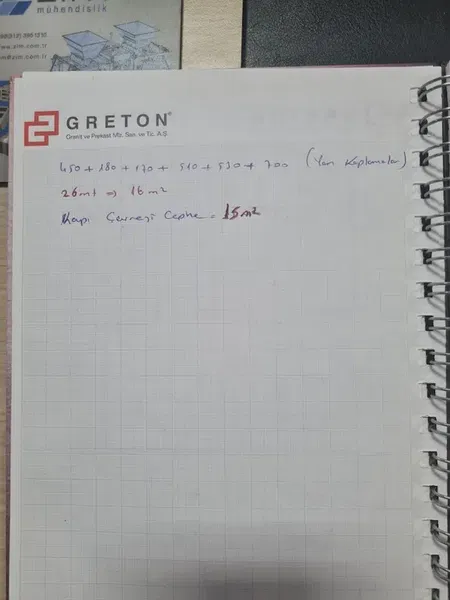 mühendislik
GRETON
Granit ve Prekast Mlz. San. ve Tic. A.Ş.
450 + 180 + 170 + 510 + 530 + 700 (Yan Kaplamalar)
26mt => 16 m²
Kapı Çevresi Cephe = 15m²